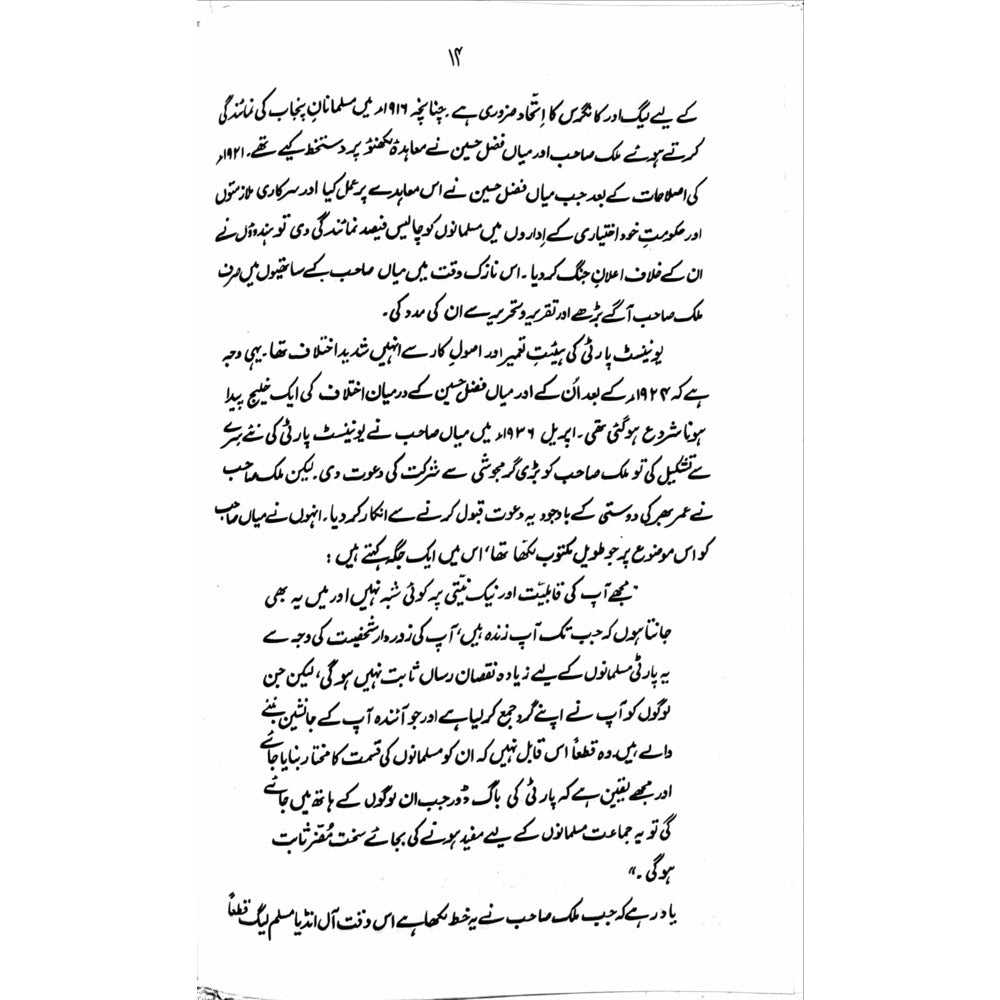 ۱۴
کے لیے لیگ اور کانگرس کا اتحاد ضروری ہے۔ چنانچہ ۱۹۱۶ء میں مسلمانانِ پنجاب کی نمائندگی
کرتے ہوئے ملک صاحب اور میاں فضل حسین نے معاہدۂ لکھنؤ پر دستخط کیے تھے۔ ۱۹۲۱ء
کی اصلاحات کے بعد جب میاں فضل حسین نے اس معاہدے پر عمل کیا اور سرکاری ملازمتوں
اور حکومتِ خود اختیاری کے اِداروں میں مسلمانوں کو چالیس فیصد نمائندگی دی تو ہندوؤں نے
ان کے خلاف اعلانِ جنگ کر دیا۔ اس نازک وقت میں میاں صاحب کے ساتھیوں میں صرف
ملک صاحب آگے بڑھے اور تقریر و تحریر سے ان کی مدد کی۔
یونینسٹ پارٹی کی ہیئتِ تعمیر اور اصولِ کار سے انہیں شدید اختلاف تھا۔ یہی وجہ
ہے کہ ۱۹۲۴ء کے بعد اُن کے اور میاں فضل حسین کے درمیان اختلاف کی ایک خلیج پیدا
ہونا شروع ہو گئی تھی۔ اپریل ۱۹۳۶ء میں میاں صاحب نے یونینسٹ پارٹی کی نئے سِرے
سے تشکیل کی تو ملک صاحب کو بڑی گرمجوشی سے شرکت کی دعوت دی۔ لیکن ملک صاحب
نے عمر بھر کی دوستی کے باوجود یہ دعوت قبول کرنے سے انکار کر دیا۔ انہوں نے میاں صاحب
کو اس موضوع پر جو طویل مکتوب لکھا تھا، اس میں ایک جگہ کہتے ہیں :
"مجھے آپ کی قابلیّت اور نیک نیّتی پر کوئی شبہ نہیں اور میں یہ بھی
جانتا ہوں کہ جب تک آپ زندہ ہیں، آپ کی زور دار شخصیت کی وجہ سے
یہ پارٹی مسلمانوں کے لیے زیادہ نقصان رساں ثابت نہیں ہو گی، لیکن جن
لوگوں کو آپ نے اپنے گرد جمع کر لیا ہے اور جو آئندہ آپ کے جانشین بننے
والے ہیں۔ وہ قطعاً اس قابل نہیں کہ ان کو مسلمانوں کی قسمت کا مختار بنایا جائے
اور مجھے یقین ہے کہ پارٹی کی باگ ڈور جب ان لوگوں کے ہاتھ میں جائے
گی تو یہ جماعت مسلمانوں کے لیے مفید ہونے کی بجائے سخت مُضر ثابت
ہو گی۔"
یاد رہے کہ جب ملک صاحب نے یہ خط لکھا ہے اس وقت آل انڈیا مسلم لیگ قطعاً